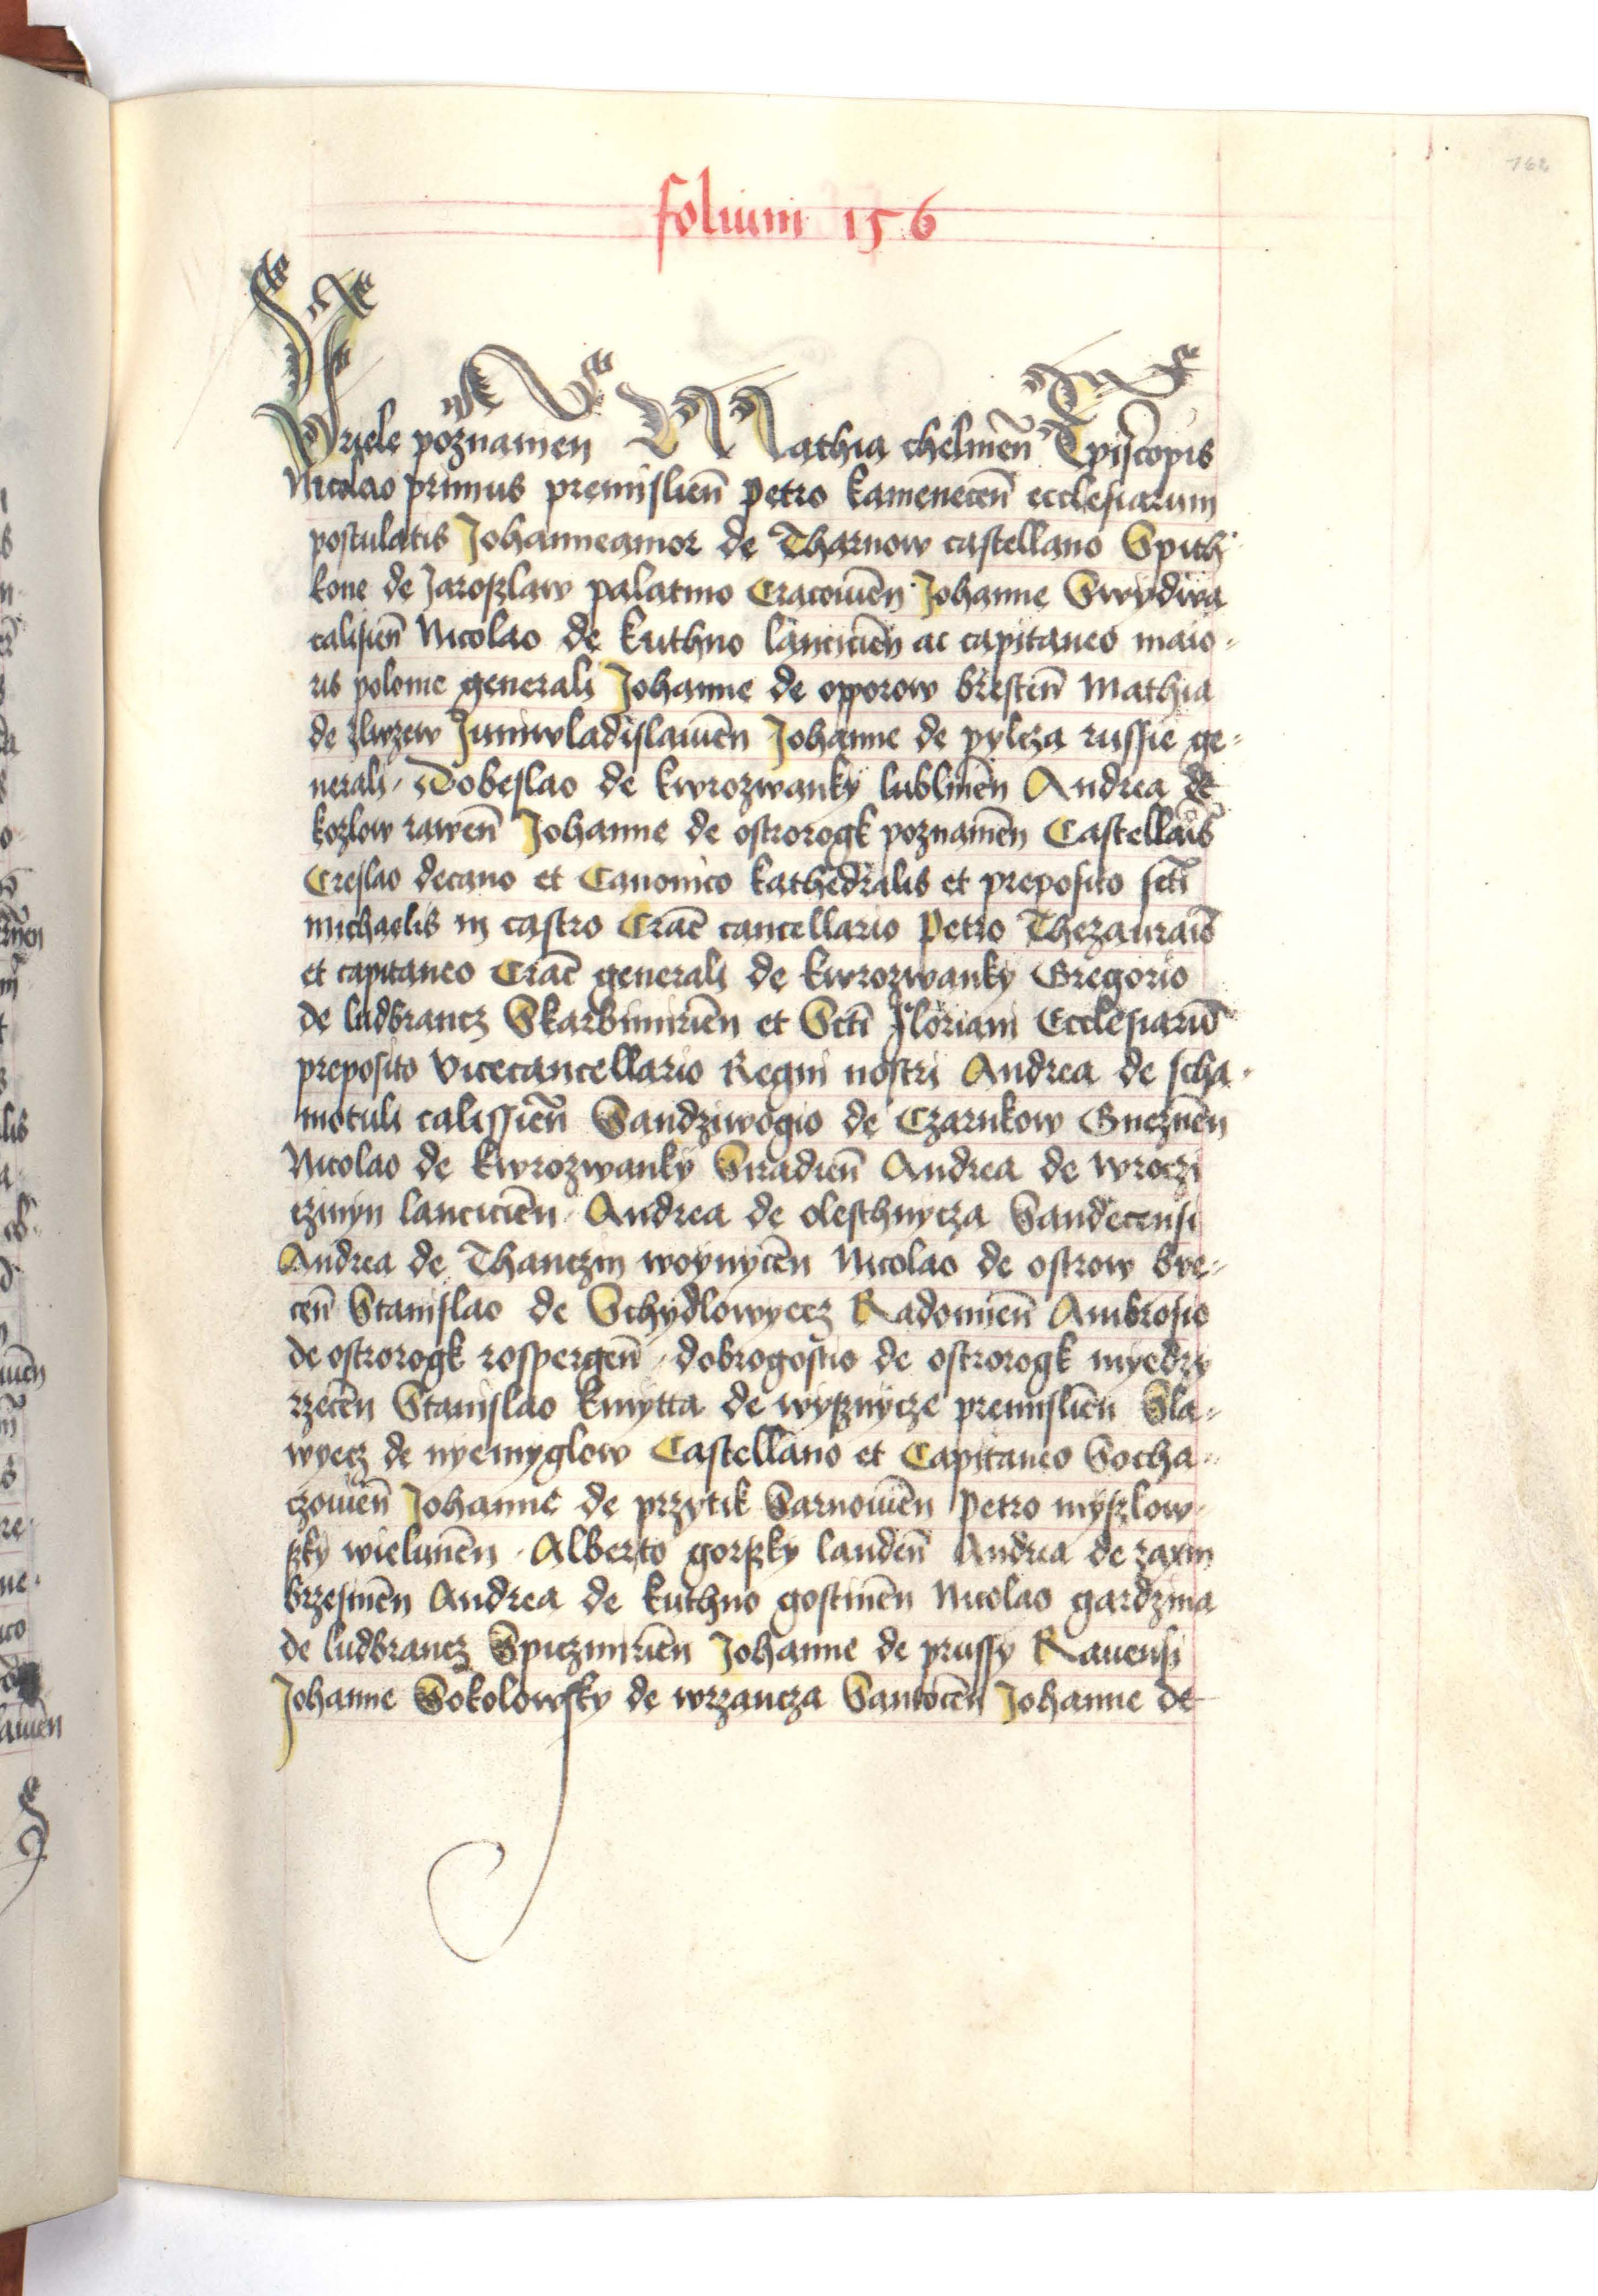 162
folium 156
Vriele poznanien Mathia chelmen̄ Episcopis
Nicolao primus premislien̄ petro kamenecen̄ ecclesiarum
postulatis Johanneamor de Tharnow castellano Spith
kone de Jaroslaw palatino Cracouien̄ Johanne Swydwa
calisien̄ Nicolao de kuthno lancicien̄ ac capitaneo maio-
ris polonie generali Johanne de opporow brestен̄ Mathia
de sluzew Juniwladislauien̄ Johanne de pylcza russie ge-
nerali. Dobeslao de kwrozwanky lublinen̄ Andrea de
kozlow rawen̄ Johanne de ostrorogk poznanien̄ Castellāis
Creslao decano et Canonico kathedralis et preposito scti
michaelis in castro Crac̄ cancellario Petro Thezauraīo
et capitaneo Crac̄ generali de kwrozwanky Gregorio
de ludbrancz Skarbimirien̄ et Scti floriani Ecclesiarū
preposito vicecancellario Regni nostri Andrea de scha-
motuli calissien̄ Sandziwogio de Czarnkow Gneznen̄
Nicolao de kwrozwanky Siradien̄ Andrea de wroczi
czmyn lancicien̄. Andrea de oleschnycza Sandecensi
Andrea de Thanczin woynycen̄ Nicolao de ostrow bye-
cen̄ Stanislao de Schydlowyecz Radomien̄ Ambrosio
de ostrorogk rospergen̄. dobrogostio de ostrorogk myedzy
rzecen̄ Stanislao kmytta de wysznycze premislien̄ Sla-
wyecz de nyemyglow Castellano et Capitaneo Socha-
czouien̄ Johanne de przytik Sarnouien̄ Petro myszlow-
szky wielunen̄. Alberto gorszky landen̄ Andrea de zaxin
brzesinen̄ Andrea de kuthno gostinen̄ Nicolao gardzina
de ludbrancz Spiczimirien̄ Johanne de prussy Rauensi
Johanne Sokolowsky de wrzancza Santocen̄ Johanne de